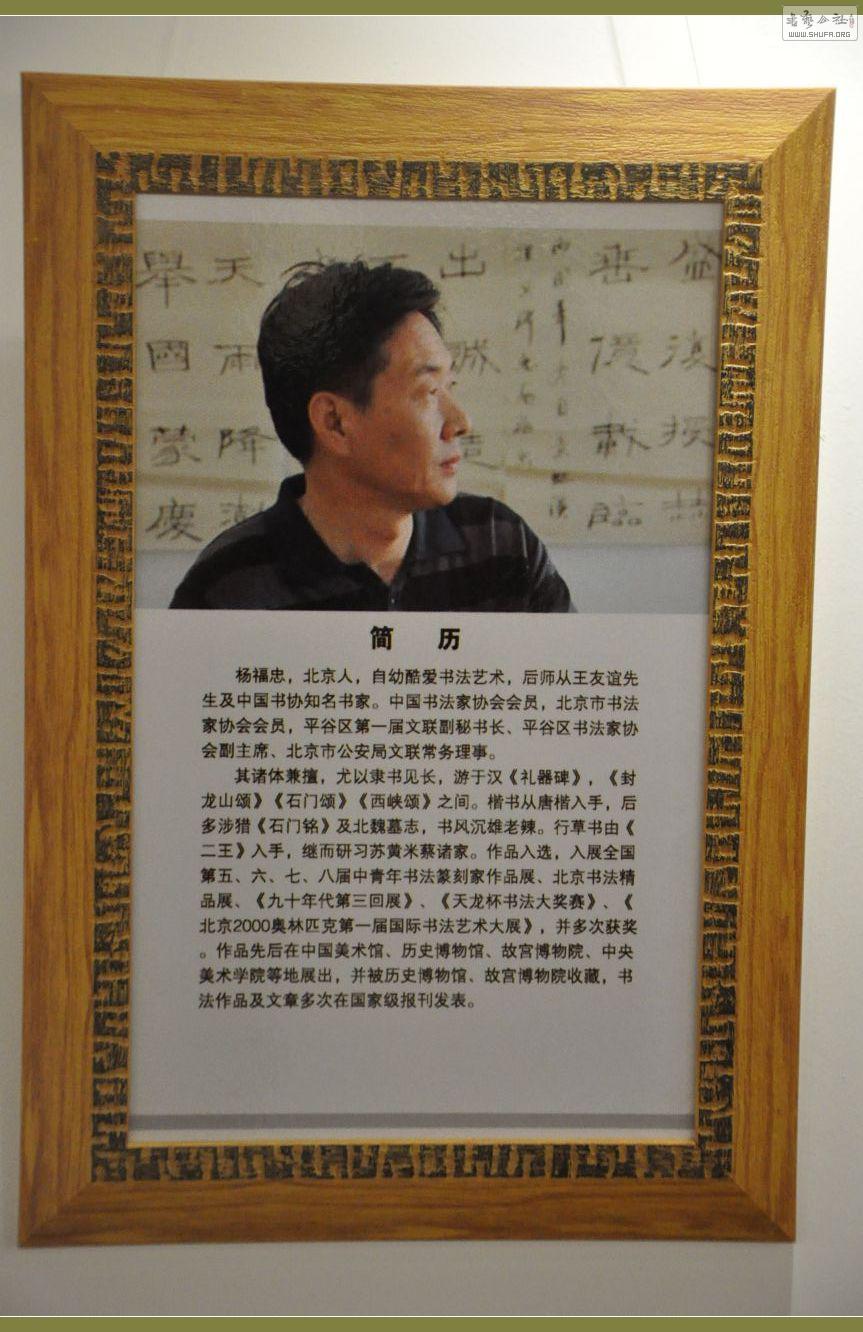 書藝公社
WWW.SHUFA.ORG
舉 天 出 垂
國 雨
蒙 降 臨
慶
简 历
杨福忠，北京人，自幼酷爱书法艺术，后师从王友谊先
生及中国书协知名书家。中国书法家协会会员，北京市书法
家协会会员，平谷区第一届文联副秘书长、平谷区书法家协
会副主席、北京市公安局文联常务理事。
其诸体兼擅，尤以隶书见长，游于汉《礼器碑》，《封
龙山颂》《石门颂》《西峡颂》之间。楷书从唐楷入手，后
多涉猎《石门铭》及北魏墓志，书风沉雄老辣。行草书由《
二王》入手，继而研习苏黄米蔡诸家。作品入选，入展全国
第五、六、七、八届中青年书法篆刻家作品展、北京书法精
品展、《九十年代第三回展》、《天龙杯书法大奖赛》、《
北京2000奥林匹克第一届国际书法艺术大展》，并多次获奖
。作品先后在中国美术馆、历史博物馆、故宫博物院、中央
美术学院等地展出，并被历史博物馆、故宫博物院收藏，书
法作品及文章多次在国家级报刊发表。